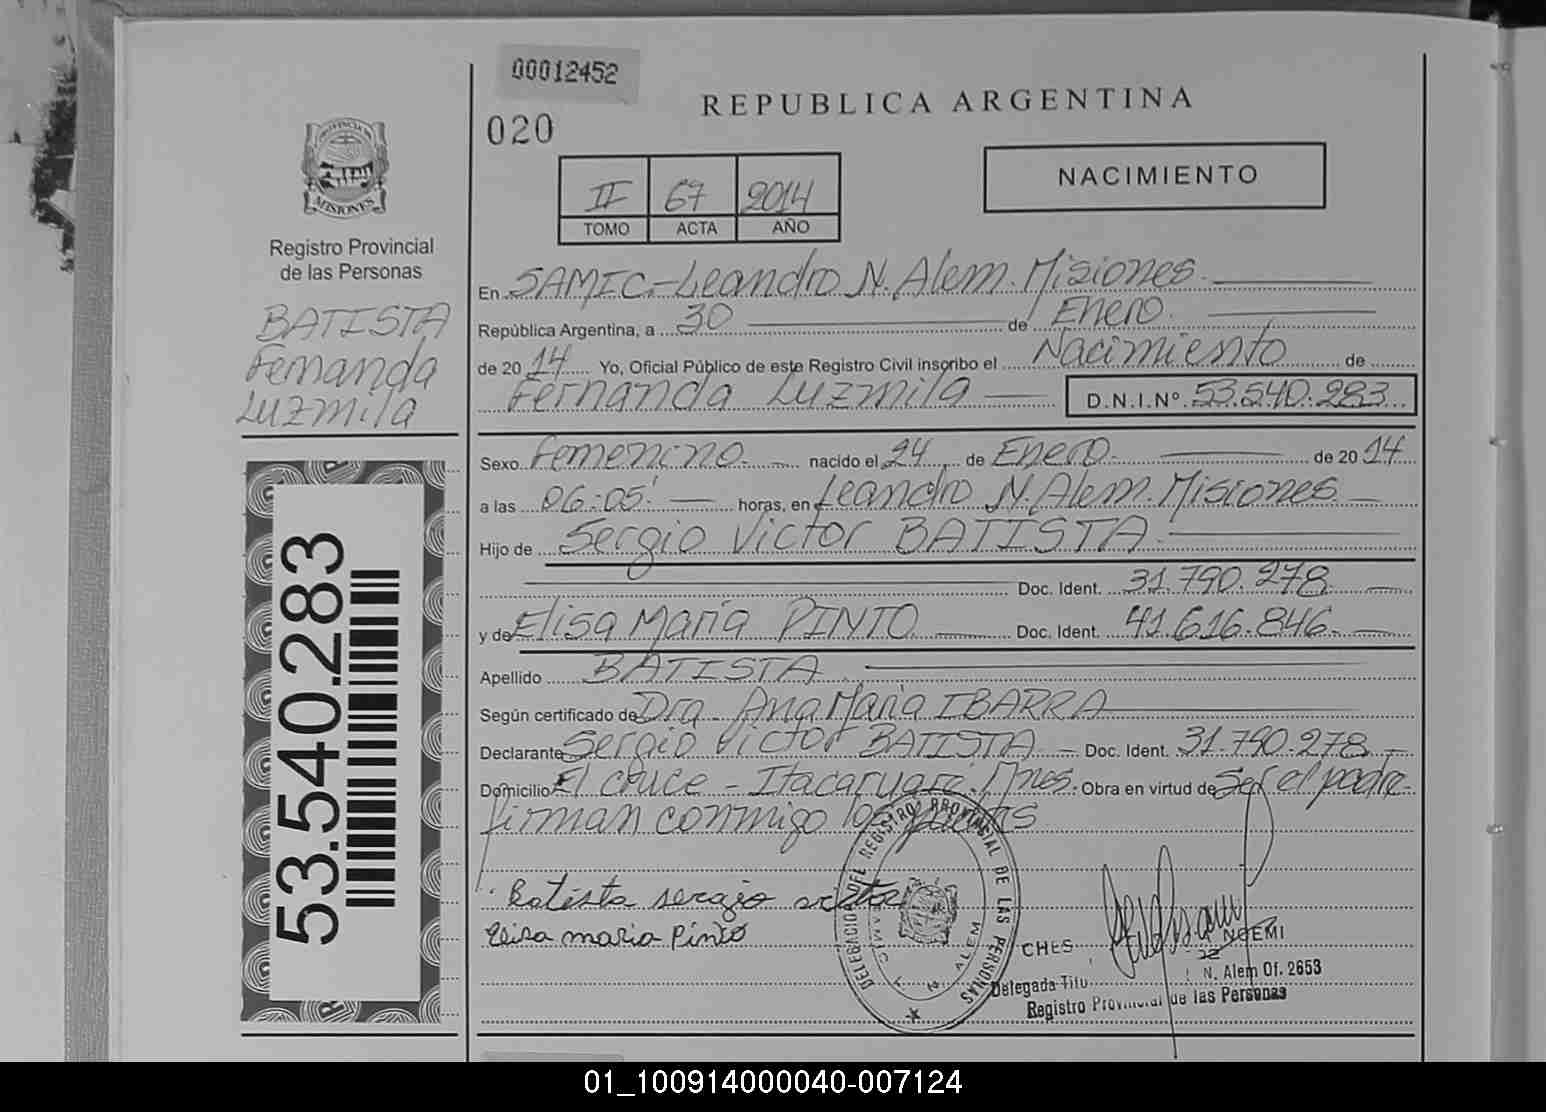 00012452
020
REPUBLICA ARGENTINA
NACIMIENTO
II 67 2014
TOMO ACTA AÑO
PROVINCIA DE
MISIONES
Registro Provincial
de las Personas
BATISTA
Fernanda
Luzmila
53.540.283
En SAMIC-Leandro N. Alem. Misiones.
República Argentina, a 30 de Enero.
de 2014 Yo, Oficial Público de este Registro Civil inscribo el Nacimiento de
Fernanda Luzmila D.N.I.Nº 53.540.283
Sexo Femenino. nacido el 24 de Enero. de 2014
a las 06:05' horas, en Leandro N. Alem. Misiones.
Hijo de Sergio Victor BATISTA.
Doc. Ident. 31.790.278
y de Elisa María PINTO Doc. Ident. 41.616.846
Apellido BATISTA
Según certificado de Dra Ana María IBARRA
Declarante Sergio Victor BATISTA Doc. Ident. 31.790.278
Domicilio El cruce - Itacaruaré. Mnes. Obra en virtud de Ser el padre.
firman conmigo los padres
Batista sergio victor
Elisa maria Pinto
DELEGACION DEL REGISTRO PROVINCIAL DE LAS PERSONAS
SAMIC L. N. ALEM
CHES NOEMI
Delegada Titu N. Alem Of. 2653
Registro Provincial de las Personas
01_100914000040-007124